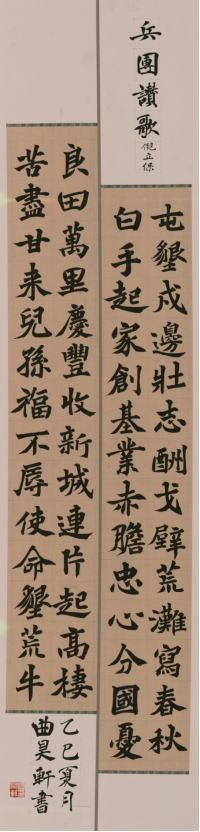 兵團讚歌
倪立保
屯墾戍邊壯志酬戈壁荒灘寫春秋
白手起家創基業赤膽忠心分國憂
良田萬里慶豐收新城連片起高樓
苦盡甘来兒孫福不辱使命墾荒牛
乙巳夏月
曲昊軒書